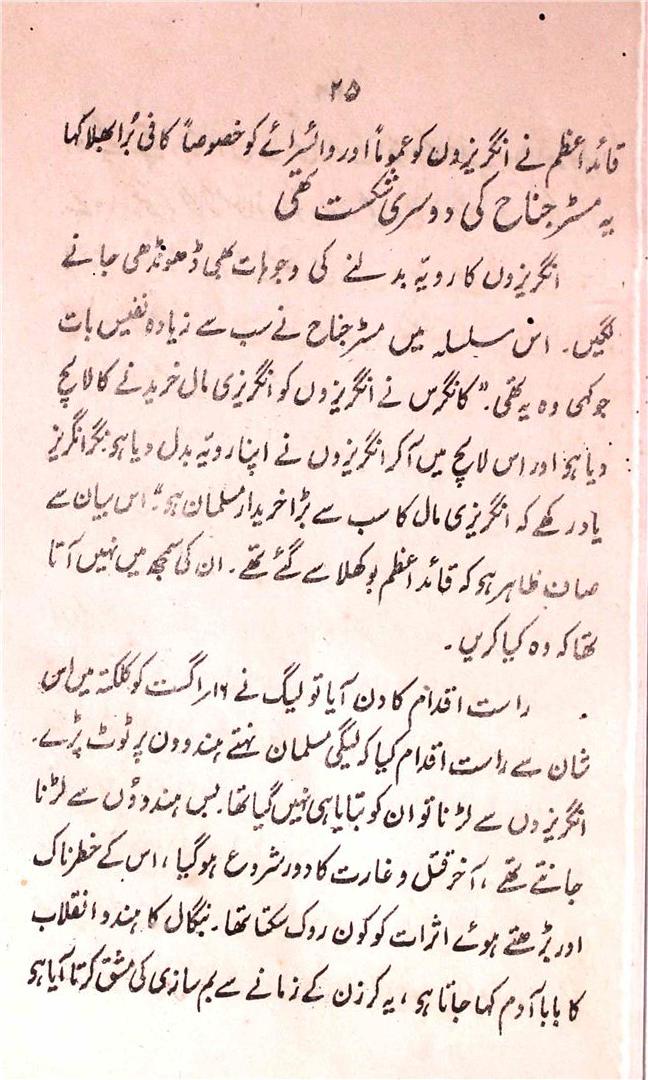 ۲۵
قائد اعظم نے انگریزون کو عموماً اور وائسرائے کو خصوصاً کافی بُرا بھلا کہا
یہ مسٹر جناح کی دوسری شکست تھی
انگریزوں کا رویّہ بدلنے کی وجوہات بھی ڈھونڈھی جانے
لگیں۔ اس سلسلہ میں مسٹر جناح نے سب سے زیادہ نفیس بات
جو کہی وہ یہ تھی۔ "کانگرس نے انگریزوں کو انگریزی مال خریدنے کا لالچ
دیا ہو اور اس لالچ میں آکر انگریزوں نے اپنا رویّہ بدل دیا ہو مگر انگریز
یاد رکھے کہ انگریزی مال کا سب سے بڑا خریدار مسلمان ہو"۔ اس بیان سے
صاف ظاہر ہو کہ قائد اعظم بوکھلا سے گئے تھے۔ ان کی سمجھ میں نہیں آتا
تھا کہ وہ کیا کریں۔
راست اقدام کا دن آیا تو لیگ نے ۱۶ر اگست کو کلکتہ میں اس
شان سے راست اقدام کیا کہ لیگی مسلمان نہتے ہندوون پر ٹوٹ پڑے۔
انگریزوں سے لڑنا تو ان کو بتایا ہی نہیں گیا تھا۔ بس ہندوؤں سے لڑنا
جانتے تھے، آخر قتل و غارت کا دور شروع ہوگیا، اس کے خطرناک
اور بڑھتے ہوئے اثرات کو کون روک سکتا تھا۔ بنگال کا ہندو انقلاب
کا بابا آدم کہا جاتا ہو، یہ کرزن کے زمانے سے بم سازی کی مشق کرتا آیا ہو